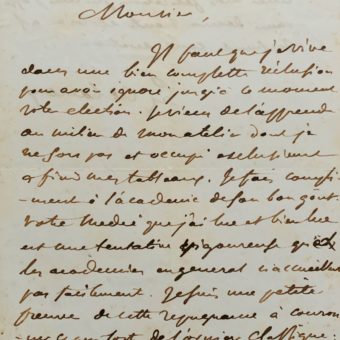 Monsieur,
Il faut que je vive
dans une bien complette réclusion
pour avoir ignoré jusqu'à ce moment
votre election. je viens de l'apprendre
au milieu de mon atelier dont je
ne sors pas et occupé exclusivement
à finir mes tableaux. Je fais compli-
-ment à l'académie de son bon gout.
votre Medée que j'ai lue et bien lue
est une tentative vigoureuse que
les academies en general n'accueillent
pas facilement. Je suis une petite
preuve de cette repugnance à couron-
-ner ce qui sort de l'ornière classique.